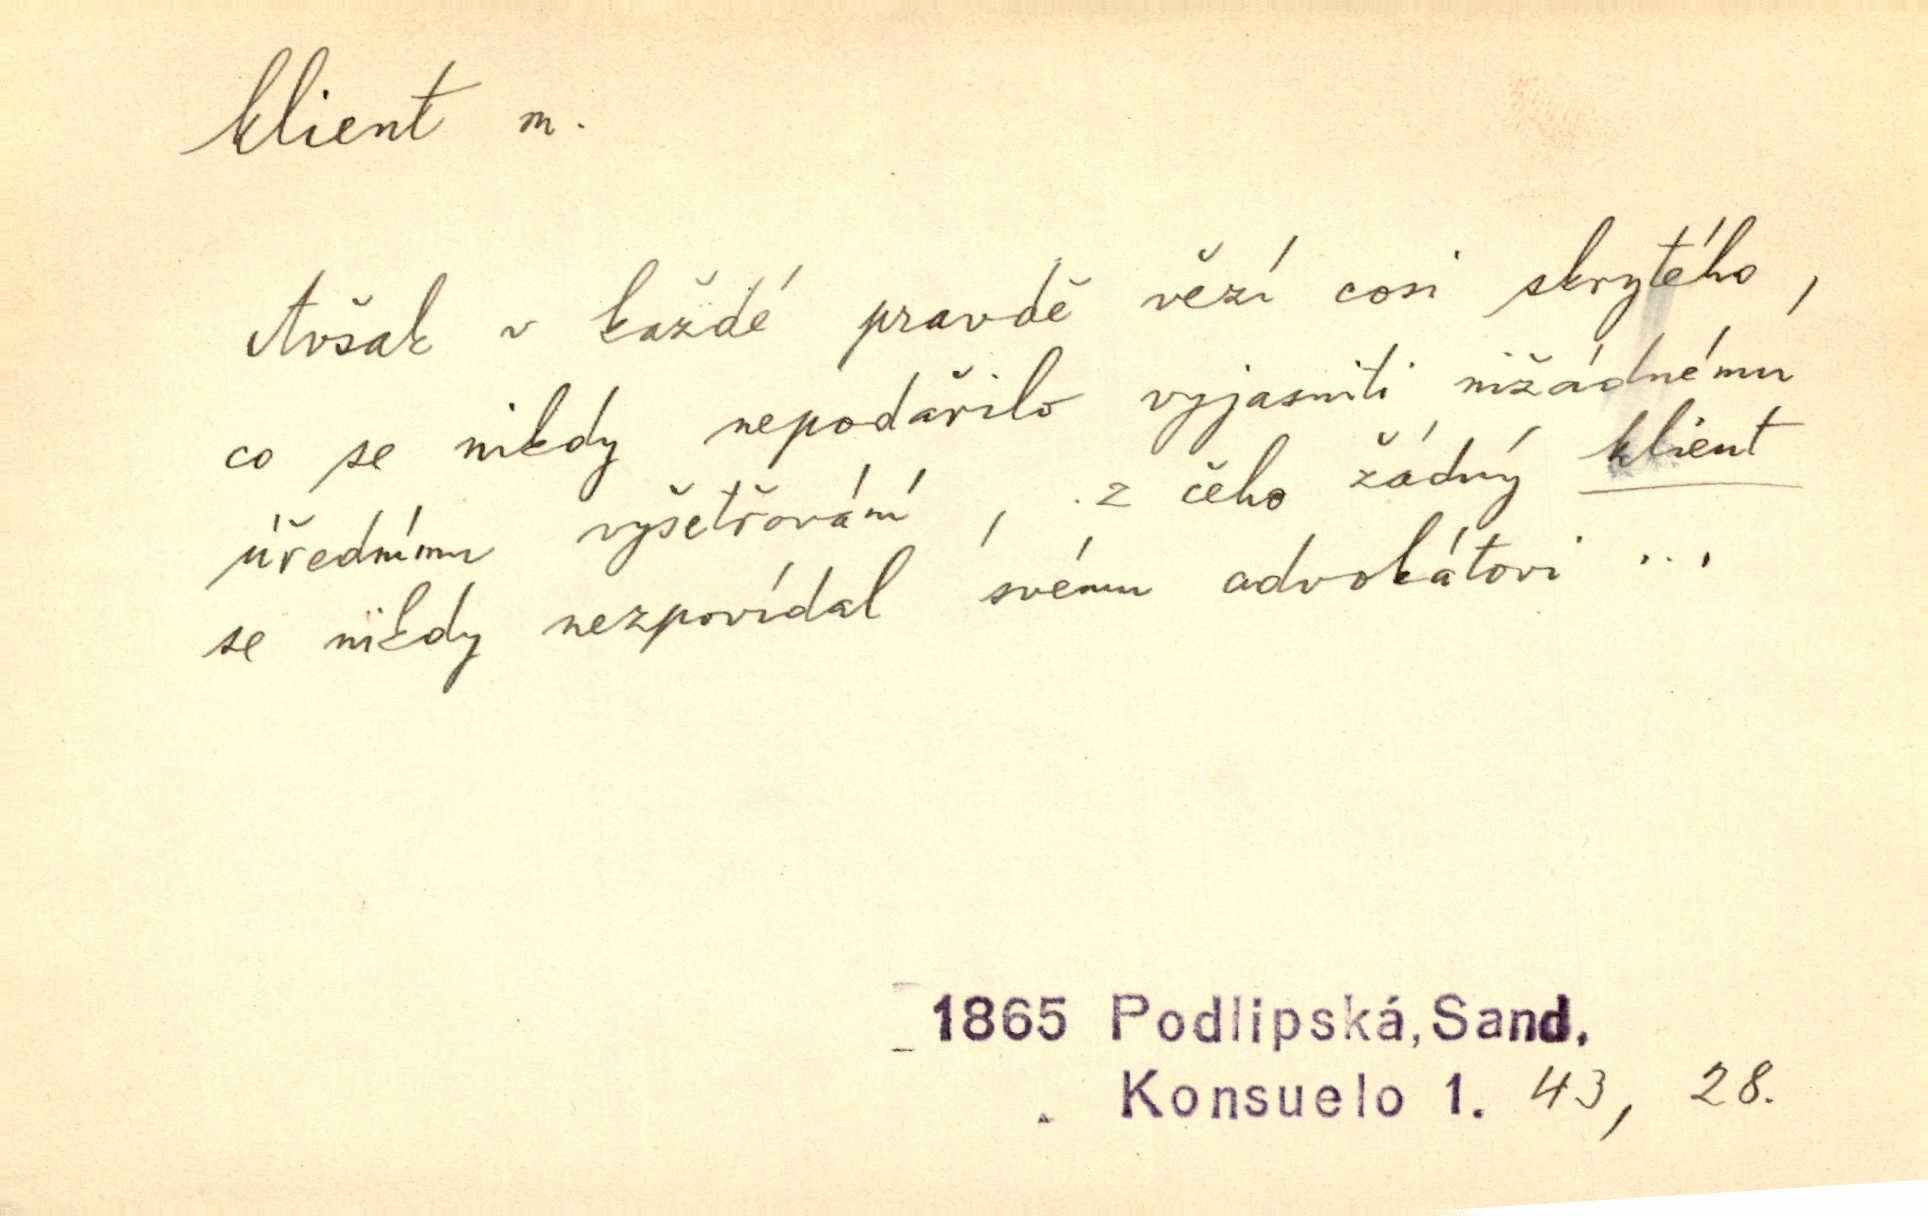 klient m.
Avšak v každé pravdě vězí cosi skrytého,
co se nikdy nepodařilo vyjasniti nižádnému
úřednímu vyšetřování, z čeho žádný klient
se nikdy nezpovídal svému advokátovi ...
1865 Podlipská, Sand.
Konsuelo 1. 43, 28.